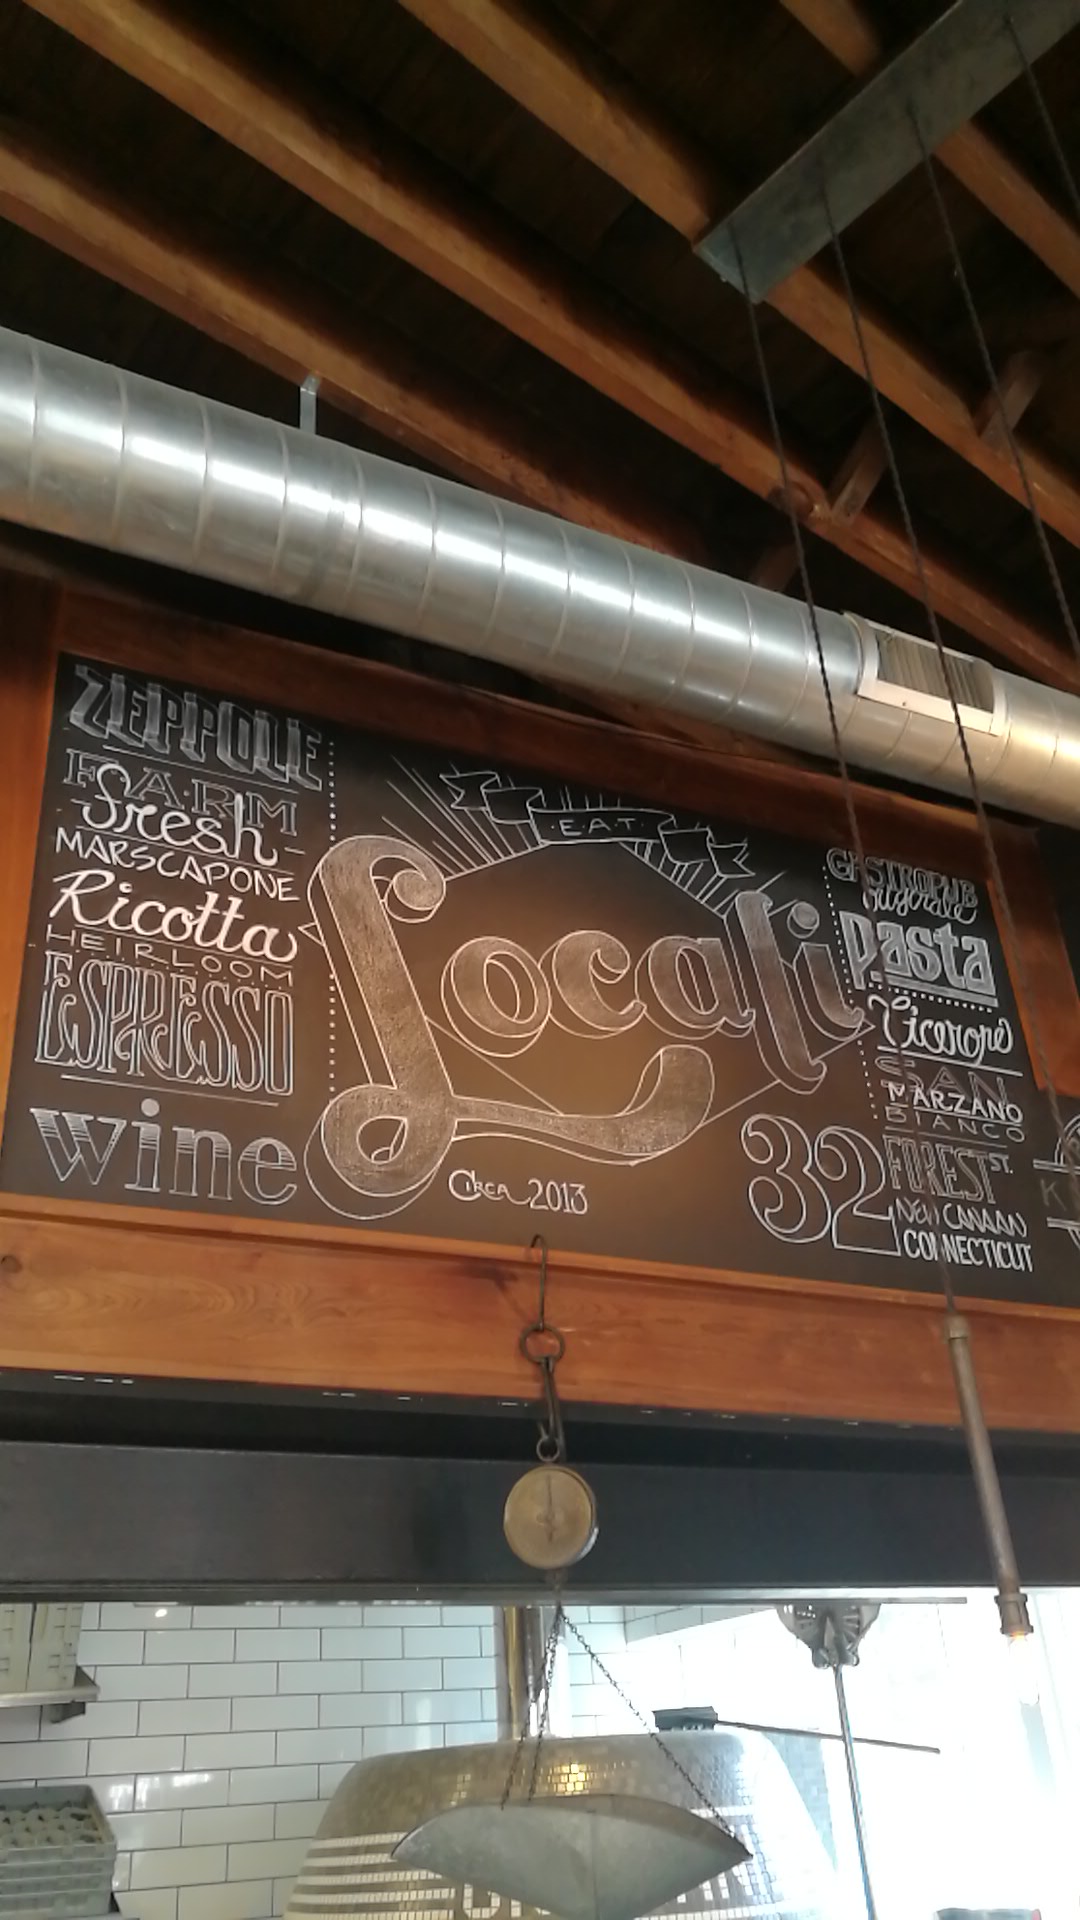 ZEPPOLE
FARM
fresh
MARSCAPONE
Ricotta
HEIRLOOM
ESPRESSO
wine
·EAT·
Locali
CIRCA 2013
GASTROPUB
Pasta
SAN
MARZANO
BIANCO
32 FOREST ST.
NEW CANAAN
CONNECTICUT